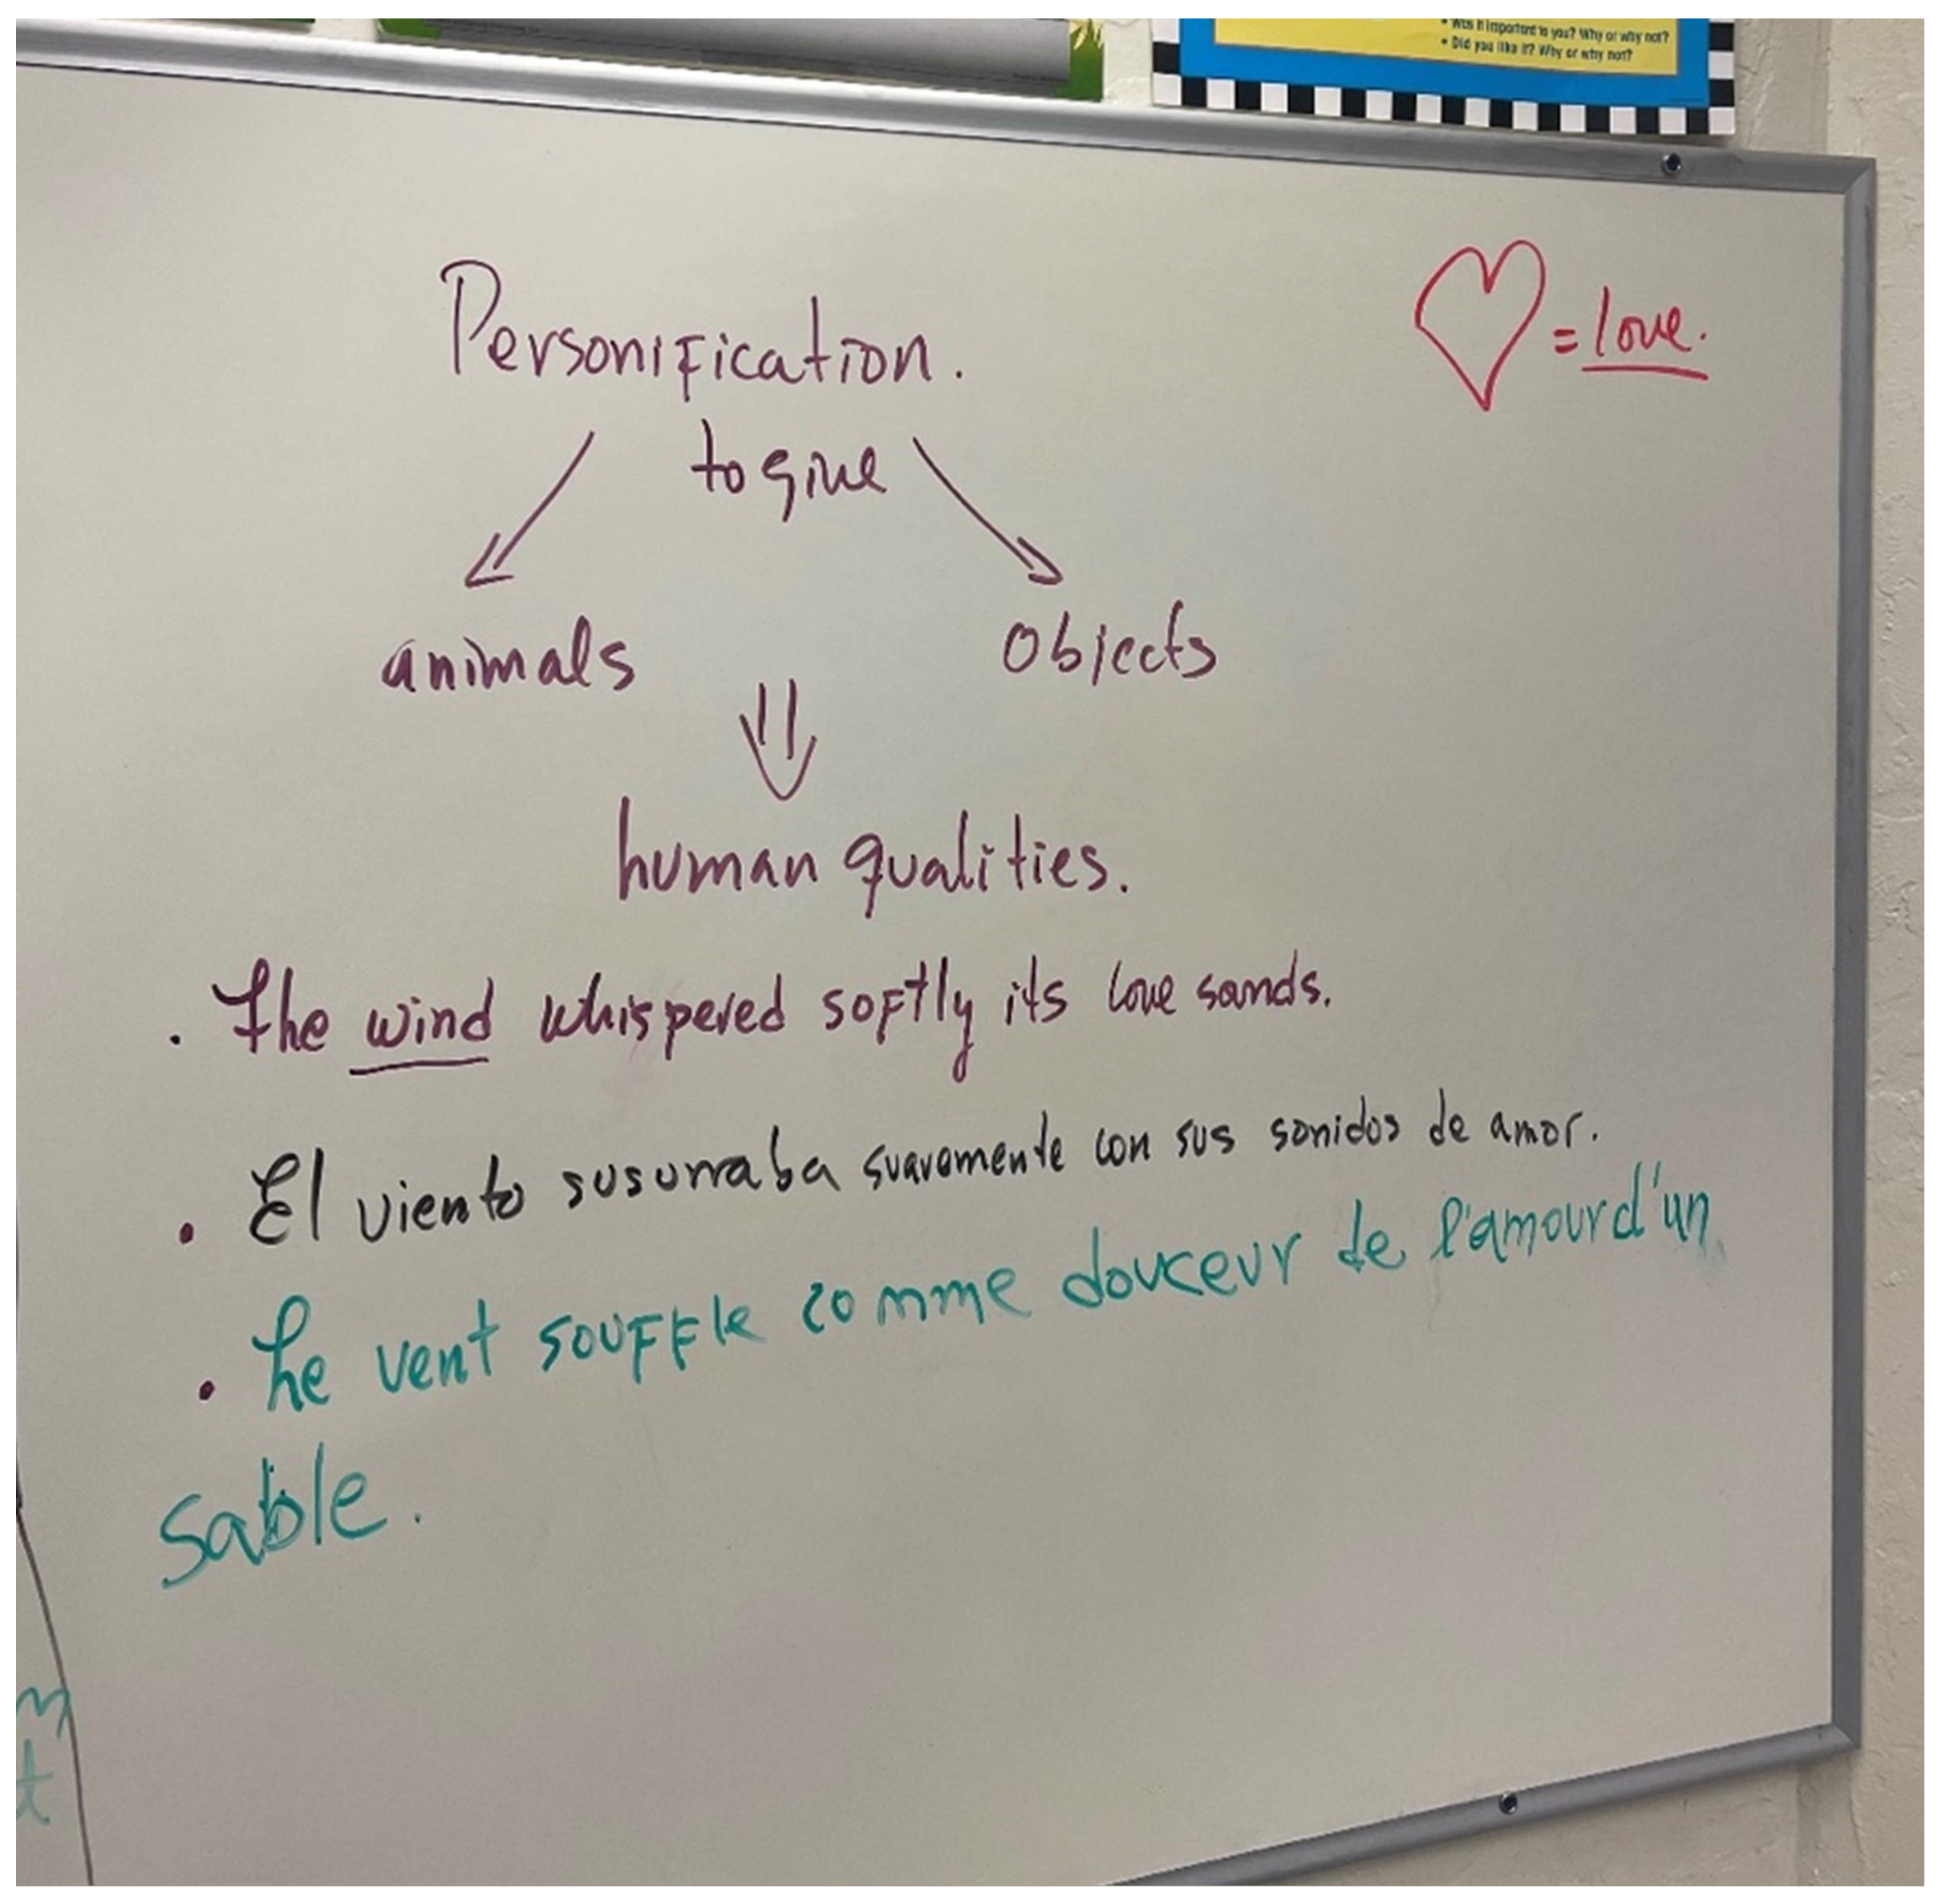 • Was it important to you? Why or why not?
• Did you like it? Why or why not?
Personification.
= love.
to give
animals
objects
human qualities.
. The wind whispered softly its love sands.
• El viento susurraba suavemente con sus sonidos de amor.
• Le vent souffle comme douceur de l'amour d'un
sable.
m
t